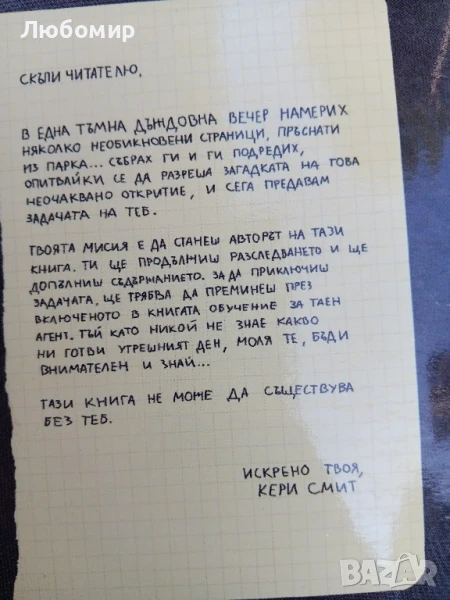 Любомир
СКЪПИ ЧИТАТЕЛЮ,
В ЕДНА ТЪМНА ДЪЖДОВНА ВЕЧЕР НАМЕРИХ
НЯКОЛКО НЕОБИКНОВЕНИ СТРАНИЦИ, ПРЪСНАТИ
ИЗ ПАРКА... СЪБРАХ ГИ И ГИ ПОДРЕДИХ,
ОПИТВАЙКИ СЕ ДА РАЗРЕША ЗАГАДКАТА НА ТОВА
НЕОЧАКВАНО ОТКРИТИЕ, И СЕГА ПРЕДАВАМ
ЗАДАЧАТА НА ТЕБ.
ТВОЯТА МИСИЯ Е ДА СТАНЕШ АВТОРЪТ НА ТАЗИ
КНИГА. ТИ ЩЕ ПРОДЪЛЖИШ РАЗСЛЕДВАНЕТО И ЩЕ
ДОПЪЛНИШ СЪДЪРЖАНИЕТО. ЗА ДА ПРИКЛЮЧИШ
ЗАДАЧАТА, ЩЕ ТРЯБВА ДА ПРЕМИНЕШ ПРЕЗ
ВКЛЮЧЕНОТО В КНИГАТА ОБУЧЕНИЕ ЗА ТАЕН
АГЕНТ. ТЪЙ КАТО НИКОЙ НЕ ЗНАЕ КАКВО
НИ ГОТВИ УТРЕШНИЯТ ДЕН, МОЛЯ ТЕ, БЪДИ
ВНИМАТЕЛЕН И ЗНАЙ...
ТАЗИ КНИГА НЕ МОЖЕ ДА СЪЩЕСТВУВА
БЕЗ ТЕБ.
ИСКРЕНО ТВОЯ,
КЕРИ СМИТ
BAZAR